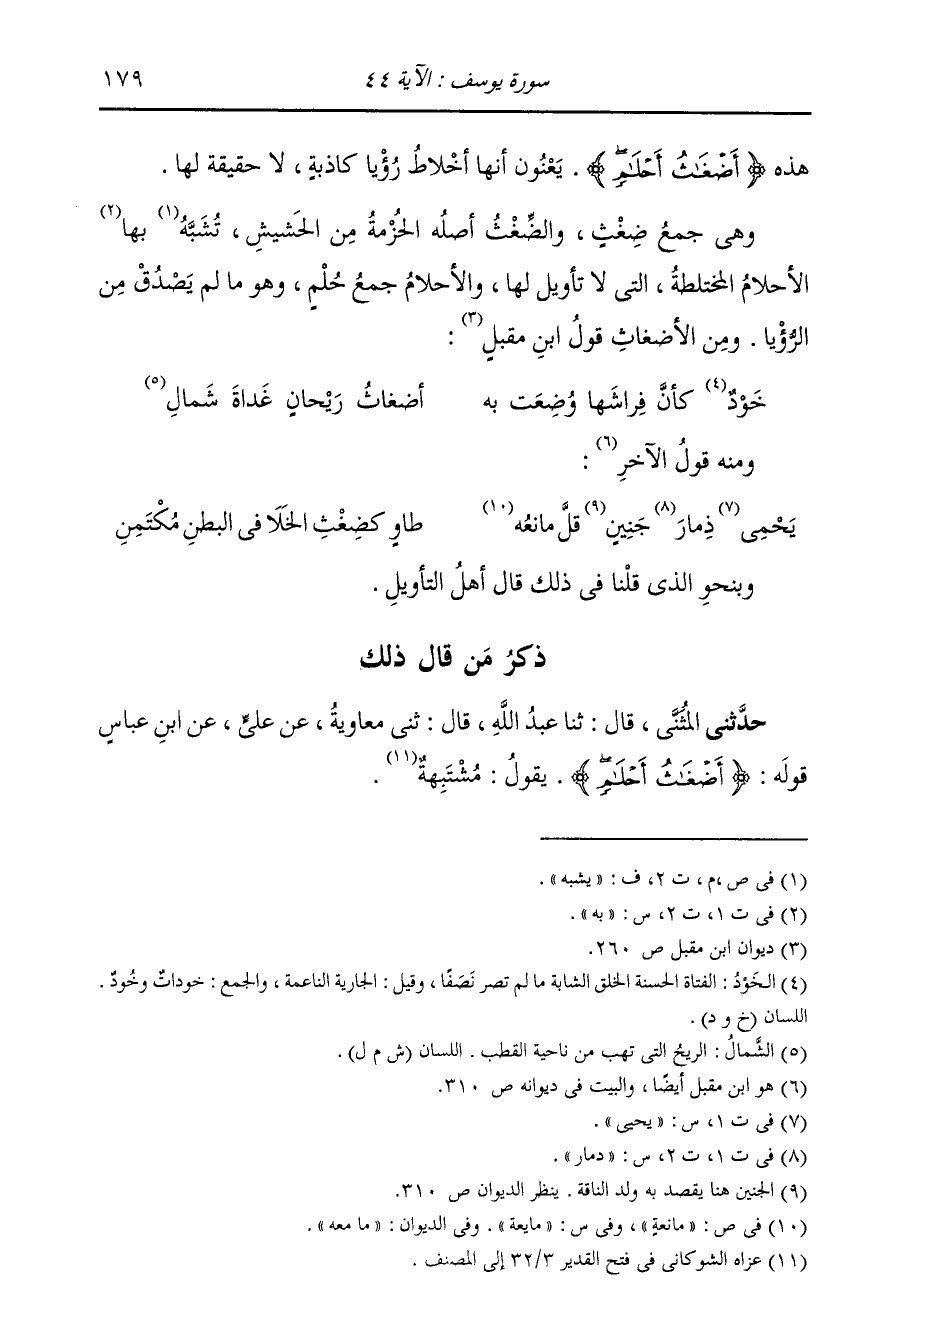 سورة يوسف : الآية ٤٤ ١٧٩
هذه ﴿ أَضْغَٰثُ أَحْلَٰمٍ ﴾ . يَعْنُون أنها أخْلاطُ رُؤْيا كاذبةٍ ، لا حقيقة لها .
وهى جمعُ ضِغْثٍ ، والضِّغْثُ أصلُه الحُزْمةُ مِن الحَشيشِ ، تُشَبَّهُ(١) بها(٢)
الأحلامُ المختلطةُ ، التى لا تأويل لها ، والأحلامُ جمعُ حُلْمٍ ، وهو ما لم يَصْدُقْ مِن
الرُّؤْيا . ومِن الأضغاثِ قولُ ابنِ مقبلٍ(٣) :
خَوْدٌ(٤) كأنَّ فِراشَها وُضِعَت به أضغاثُ رَيْحانٍ غَداةَ شَمالِ(٥)
ومنه قولُ الآخرِ(٦) :
يَحْمِى(٧) ذِمارَ(٨) جَنِينٍ(٩) قلَّ مانعُه(١٠) طاوٍ كضِغْثِ الخَلَا فى البطنِ مُكْتَمِنِ
وبنحوِ الذى قلْنا فى ذلك قال أهلُ التأويلِ .
ذكرُ مَن قال ذلك
حدَّثنى المُثَنَّى ، قال : ثنا عبدُ اللَّهِ ، قال : ثنى معاويةُ ، عن علىٍّ ، عن ابنِ عباسٍ
قولَه : ﴿ أَضْغَٰثُ أَحْلَٰمٍ ﴾ . يقولُ : مُشْتَبِهةٌ(١١) .
(١) فى ص ،م ، ت ٢، ف : « يشبه » .
(٢) فى ت ١، ت ٢، س : « به » .
(٣) ديوان ابن مقبل ص ٢٦٠.
(٤) الخَوْدُ : الفتاة الحسنة الخلق الشابة ما لم تصر نَصَفًا ، وقيل : الجارية الناعمة ، والجمع : خوداتٌ وخُودٌ .
اللسان (خ و د) .
(٥) الشَّمالُ : الريحُ التى تهب من ناحية القطب . اللسان (ش م ل) .
(٦) هو ابن مقبل أيضًا ، والبيت فى ديوانه ص ٣١٠.
(٧) فى ت ١، س : « يحيى » .
(٨) فى ت ١، ت ٢، س : « دمار » .
(٩) الجنين هنا يقصد به ولد الناقة . ينظر الديوان ص ٣١٠.
(١٠) فى ص : « مانعةٍ » ، وفى س : « مايعة » . وفى الديوان : « ما معه » .
(١١) عزاه الشوكانى فى فتح القدير ٣٢/٣ إلى المصنف .